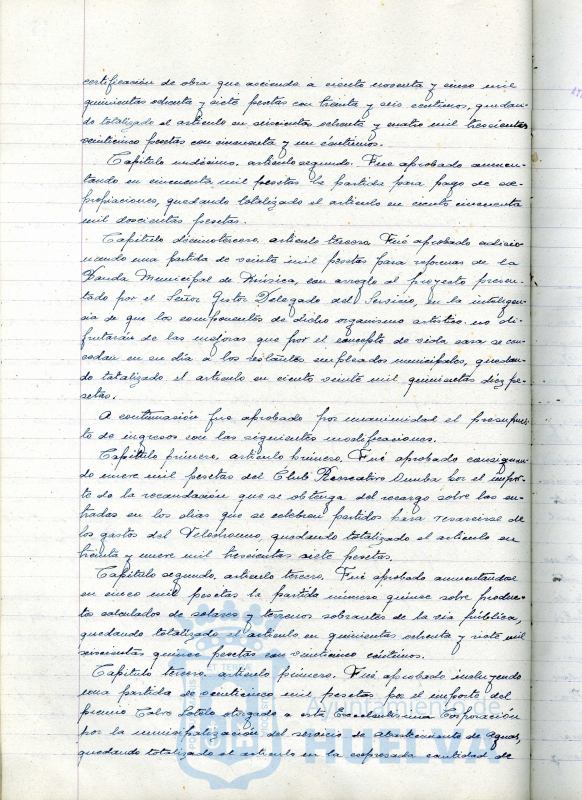 certificación de obra que asciende a ciento noventa y cinco mil
quinientas ochenta y siete pesetas con treinta y seis centimos, quedan-
do totalizado el articulo en seiscientas ochenta y cuatro mil trescientas
veinticinco pesetas con cincuenta y un centimos.
Capitulo undécimo, articulo segundo. Fue aprobado aumen-
tando en cincuenta mil pesetas la partida para pago de ex-
propiaciones, quedando totalizado el articulo en ciento cincuenta
mil doscientas pesetas.
Capitulo decimotercero, articulo tercero. Fué aprobado adicio-
nando una partida de veinte mil pesetas para reformas de la
Banda Municipal de Música, con arreglo al proyecto presen-
tado por el Señor Gestor Delegado del Servicio, en la inteligen-
cia de que los componentes de dicho organismo artistico no di-
frutarán de las mejoras que por el concepto de vida cara se con-
cedan en su dia a los restantes empleados municipales, quedan-
do totalizado el articulo en ciento veinte mil quinientas diez pe-
setas.
A continuación fue aprobado por unanimidad el presupues-
to de ingresos con las siguientes modificaciones.
Capitulo primero, articulo primero. Fué aprobado consignan-
do nueve mil pesetas del Club Recreativo Onuba por el impor-
te de la recaudación que se obtenga del recargo sobre las en-
tradas en los dias que se celebren partidos para resarcirse de
los gastos del Velodromo, quedando totalizado el articulo en
treinta y nueve mil trescientas siete pesetas.
Capitulo segundo, articulo tercero. Fué aprobado aumentandose
en cinco mil pesetas la partida número quince sobre produc-
to calculados de solares y terrenos sobrantes de la via pública,
quedando totalizado el articulo en quinientas ochenta y siete mil
seiscientas quince pesetas con veinticinco centimos.
Capitulo tercero, articulo primero. Fué aprobado incluyendo
una partida de veinticinco mil pesetas por el importe del
premio Calvo Sotelo otorgado a esta Excelentisima Corporación
por la municipalización del servicio de abastecimiento de aguas,
quedando totalizado el articulo en la expresada cantidad de
Ayuntamiento de
HUELVA